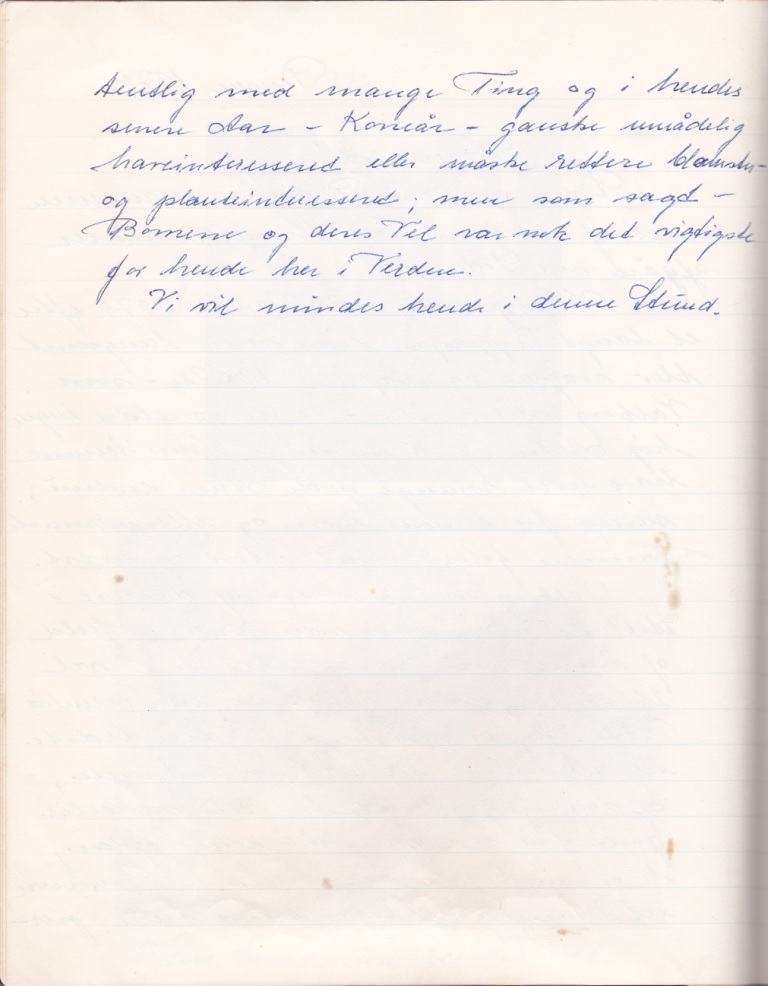 dentlig med mange Ting og i hendes
senere Aar – Koneår – ganske umådelig
haveinteresseret eller måske rettere blomster-
og planteinteresseret; men som sagt –
Børnene og deres Vel var nok det vigtigste
for hende her i Verden.
Vi vil mindes hende i denne Stund.